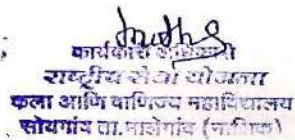 कार्यकारी अधिकारी
राष्ट्रीय सेवा योजना
कला आणि वाणिज्य महाविद्यालय
सोयगांव ता. मालेगांव (नाशिक)